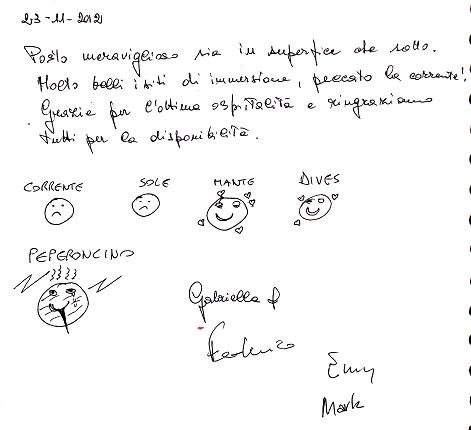 23-11-2012
Posto meraviglioso sia in superfice che sotto.
Molto belli i siti di immersione, peccato la corrente!
Grazie per l'ottima ospitalità e ringraziamo
tutti per la disponibilità.
CORRENTE SOLE MANTE DIVES
PEPERONCINO
Gabriella
Federico
Emy
Mark